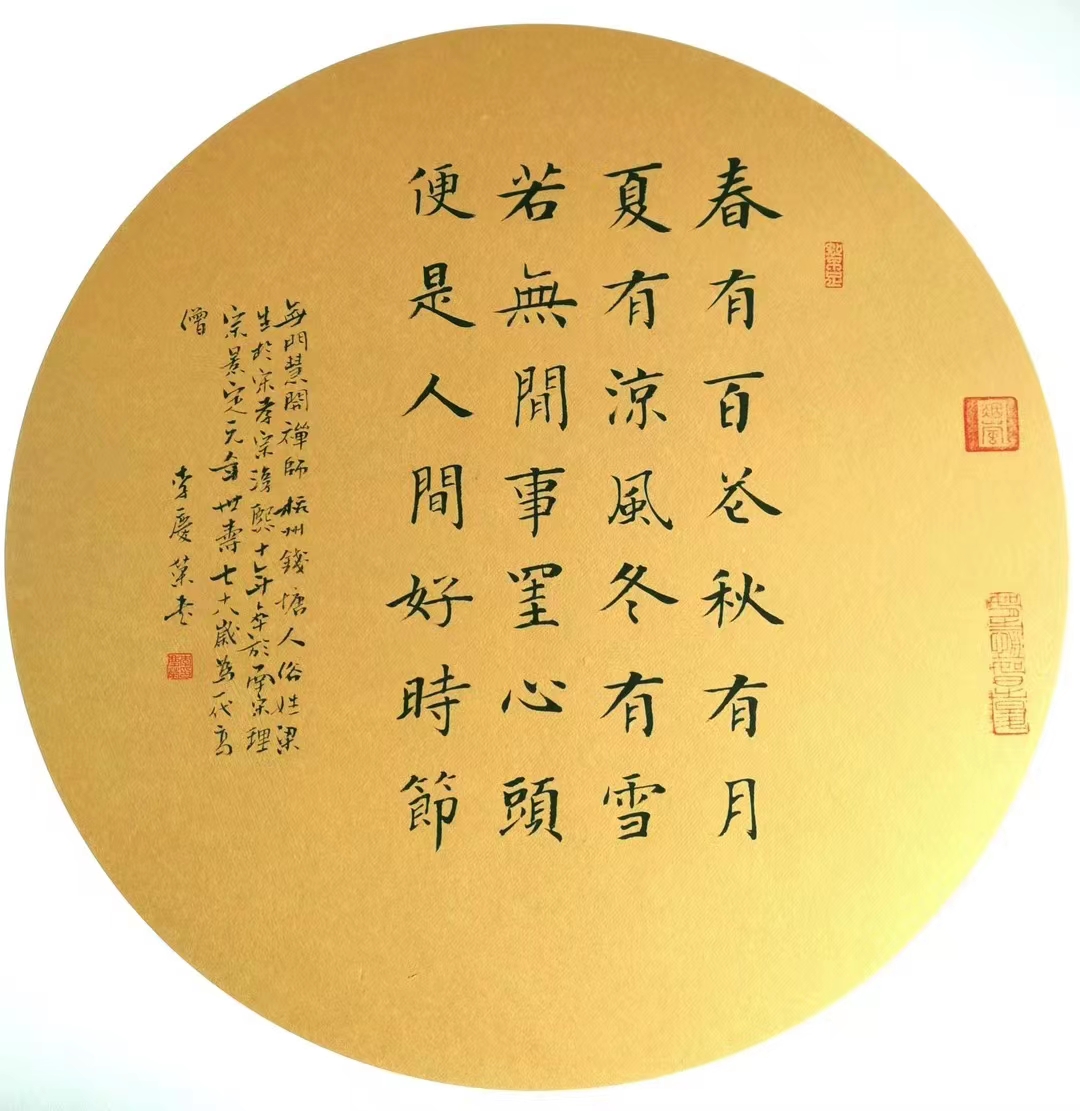 春有百花秋有月
夏有涼風冬有雪
若無閒事罣心頭
便是人間好時節
無門慧開禪師杭州錢塘人俗姓梁
生於宋孝宗淳熙十年卒於南宋理
宗景定元年世壽七十八歲為一代高
僧
李慶榮書